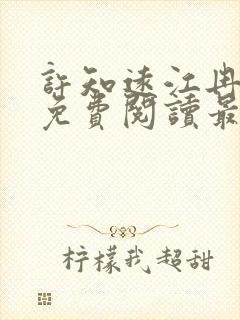 許知遠江冉
免費閱讀最
柠檬我超甜